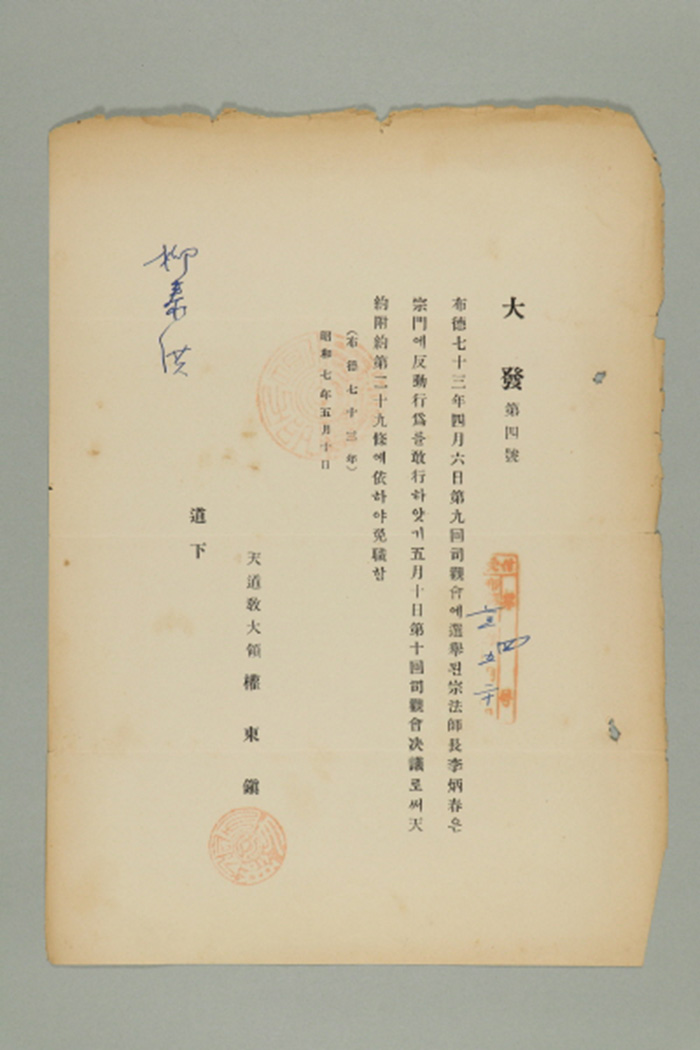 大發 第四號
布德七十三年四月六日第九回司觀會에選擧된宗法師長李炳春은
宗門에反動行爲를敢行하얏기五月十日第十回司觀會决議로써天
約附約第二十九條에依하야免職함
(布德七十三年)
昭和七年五月十日
天道敎大領 權東鎭
道下
柳泰洪